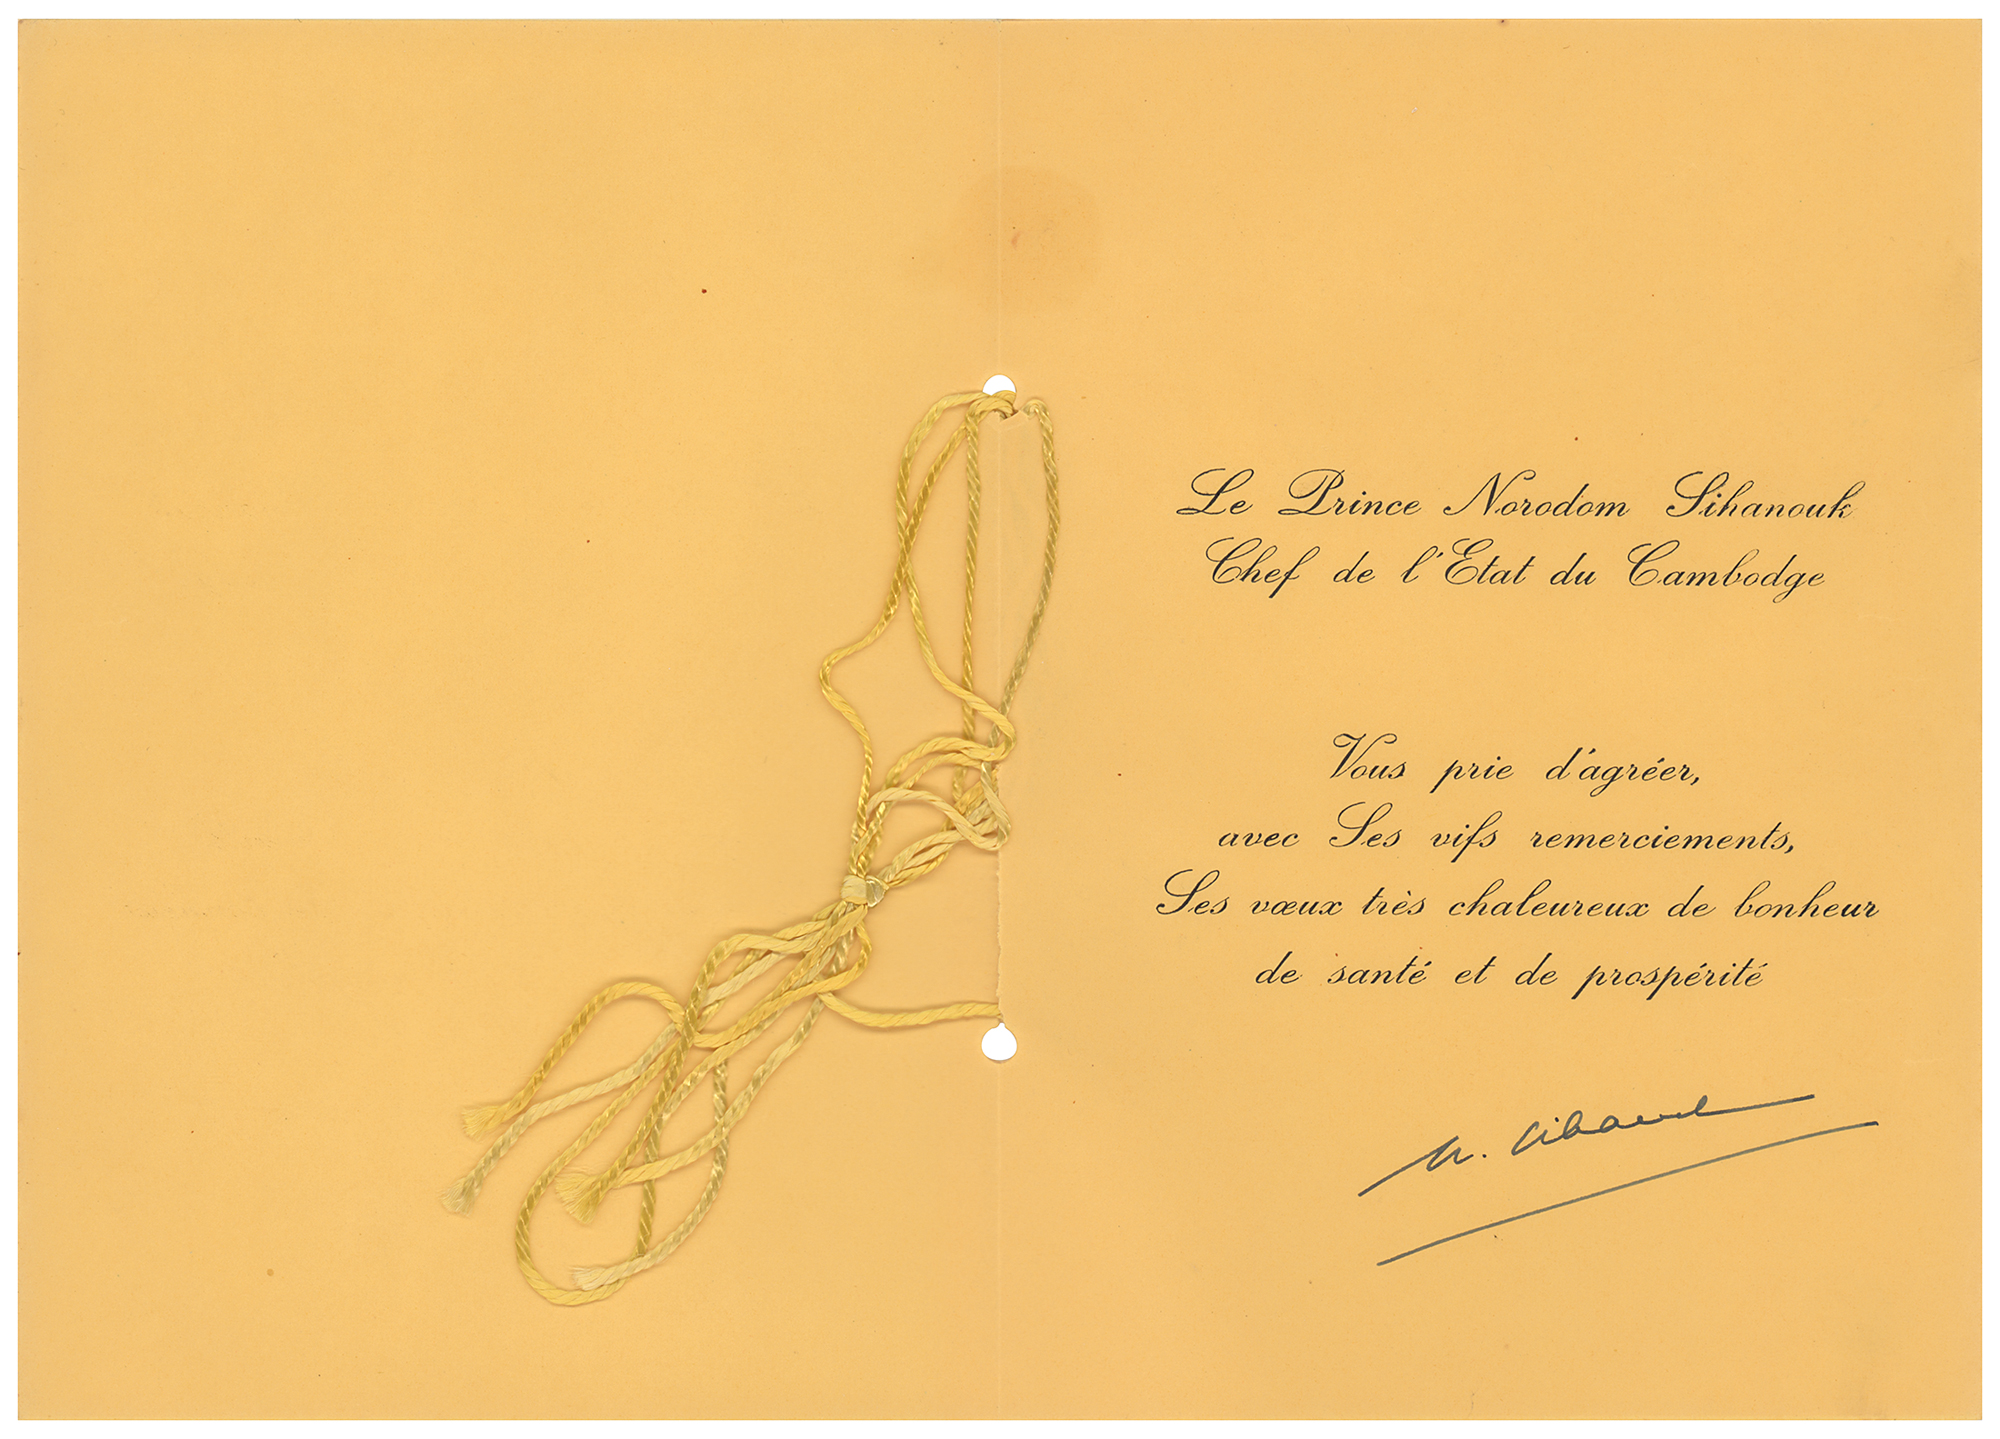 Le Prince Norodom Sihanouk
Chef de l'Etat du Cambodge
Vous prie d'agréer,
avec Ses vifs remerciements,
Ses vœux très chaleureux de bonheur
de santé et de prospérité
N. Sihanouk